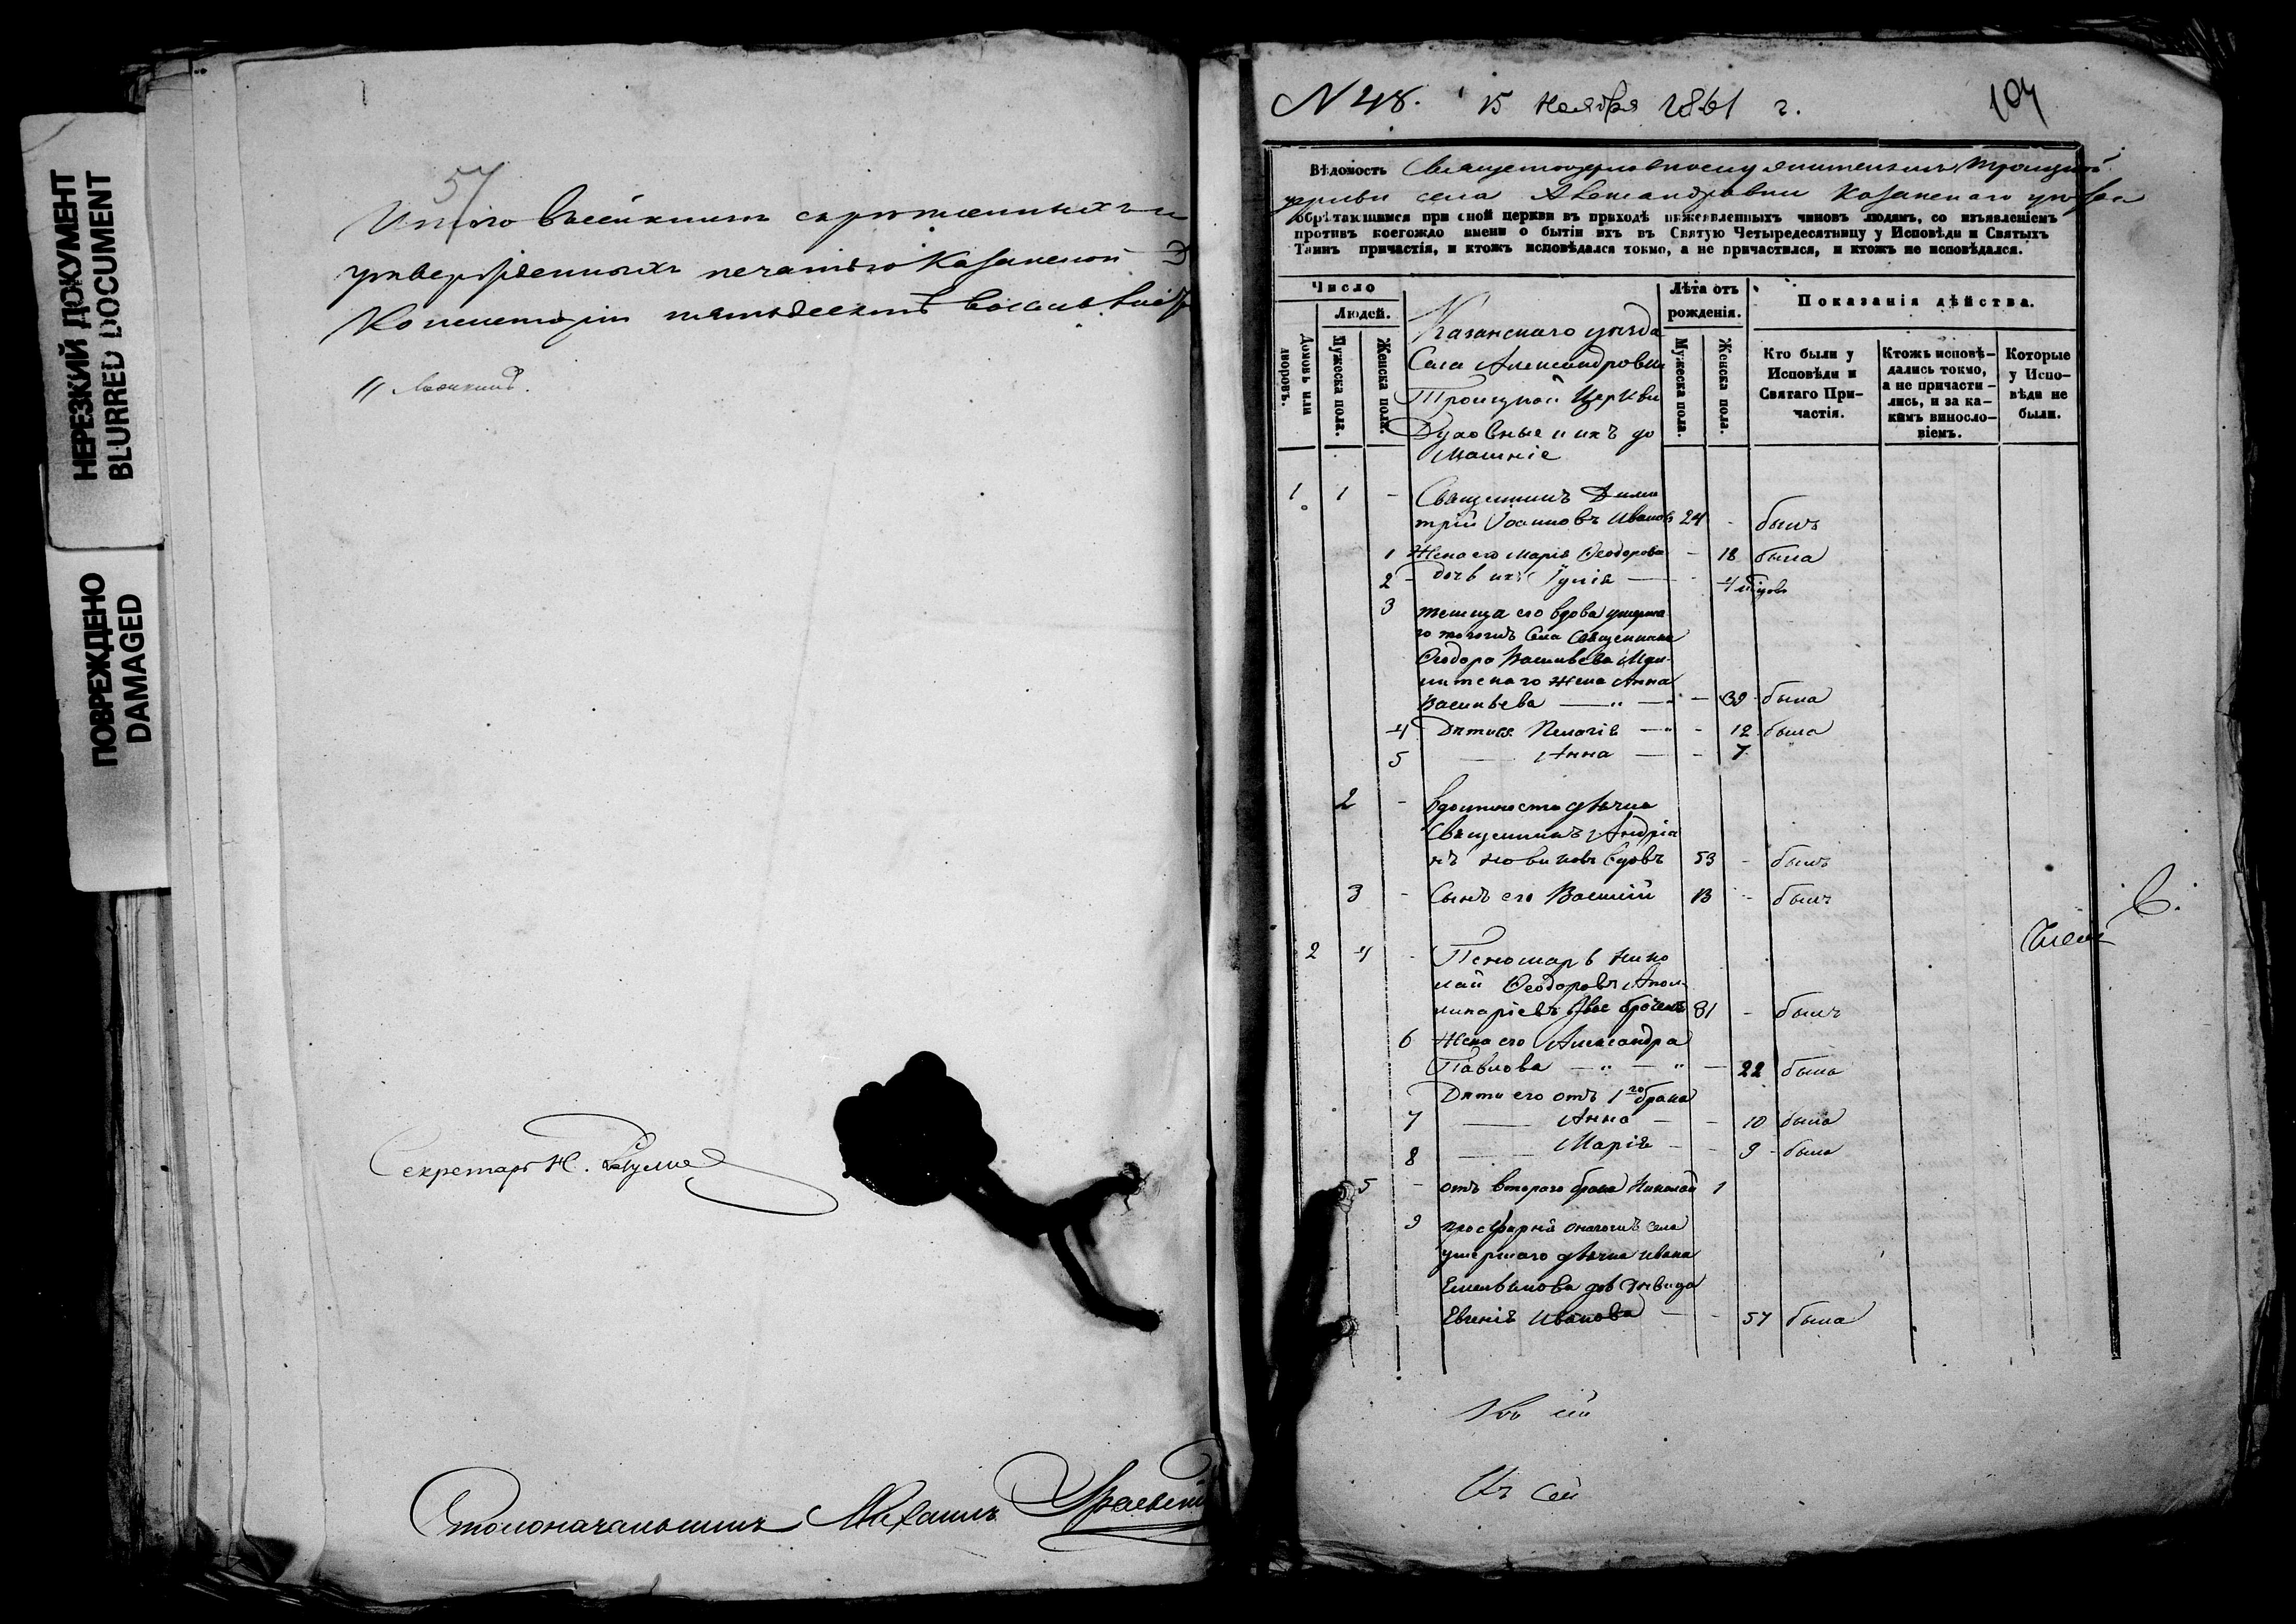 НЕРЕЗКИЙ ДОКУМЕНТ
BLURRED DOCUMENT
ПОВРЕЖДЕНО
DAMAGED
57
Итого
утвержденныхъ печатью Казанской Д
Консисторіи пятьдесятъ
Секретарь Н.
Столоначальникъ Михаилъ
N 48. 15 Ноября 1861 г.
104
Вѣдомость Священноцерковнослужителямъ Троицкой
церкви села Александровки Казанскаго уѣзда
обрѣтающимся при сной церкви въ приходѣ нижеявленныхъ чиновъ людямъ, со изъявленіемъ
противъ коегождо имени о бытіи ихъ въ Святую Четыредесятницу у Исповѣди и Святыхъ
Таинъ причастія, и ктожъ исповѣдался токмо, а не причастился, и ктожъ не исповѣдался.
Число
Домовъ или дворовъ.
Людей.
Мужеска пола.
Женска пола.
Казанскаго уѣзда
Села Александровки
Троицкой Церкви
Духовные и ихъ до
машніе
Лѣта отъ рожденія.
Мужеска пола.
Женска пола.
Показанія дѣйства.
Кто были у Исповѣди и Святаго Причастія.
Ктожъ исповѣдались токмо, а не причастились, и за какимъ винословіемъ.
Которые у Исповѣди не были.
1 1 - Священникъ Дими
трій Іоанновъ Ивановъ 24 - былъ
1 Жена его Марія Ѳеодорова - 18 была
2 - дочь ихъ Іулія — 4 мѣсяцовъ
3 теща его вдова умерша
го тогожъ Села Священника
Ѳеодора Васильева
жена Анна
Васильева — " — - 39 - была
4 Дѣти ея Пелагія — " - 12 была
5 — Анна — - 7 "
2 - В должности дьячка
Священникъ Андріа
нъ Новиковъ вдовъ 53 - былъ
3 - Сынъ его Василій 13 - былъ
2 4 - Пономарь Нико
лай Ѳеодоровъ Апол
линаріевъ 31 - былъ
6 Жена его Александра
Павлова — " — " — 22 была
Дѣти его отъ 1го брака
7 — Анна — - 10 была
8 — Марія - - 9 - была
5 - отъ втораго брака Николай 1
9 просфирня села
умершаго дьячка Ивана
Емельянова дочь дѣвица
Евгенія Иванова — - 57 была